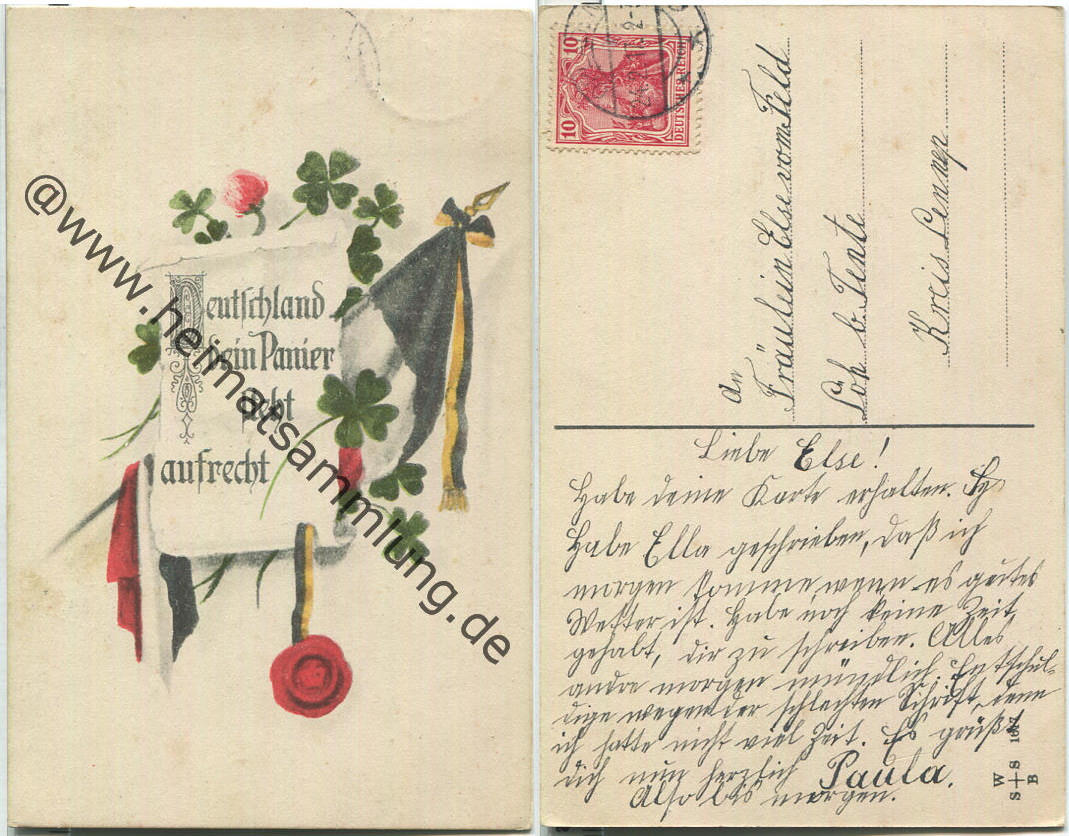 Deutschland
Dein Panier
steht
aufrecht
@www.heimatsammlung.de
10 10
DEUTSCHES REICH
An
Fräulein Else vom Feld
Loh b. Tente
Kreis Lennep
Liebe Else!
Habe deine Karte erhalten.
Habe Ella geschrieben, daß ich
morgen komme wenn es gutes
Wetter ist. Habe noch keine Zeit
gehabt, dir zu schreiben. Alles
andre morgen mündlich. Entschul-
dige wegen der schlechten Schrift, denn
ich hatte nicht viel Zeit. Es grüßt
dich nun herzlich Paula.
Also bis morgen.
W
S+S
B